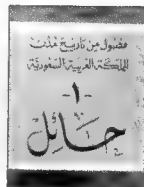 فصول من تاريخ مدن
المملكة العربية السعودية
- ١ -
حائل